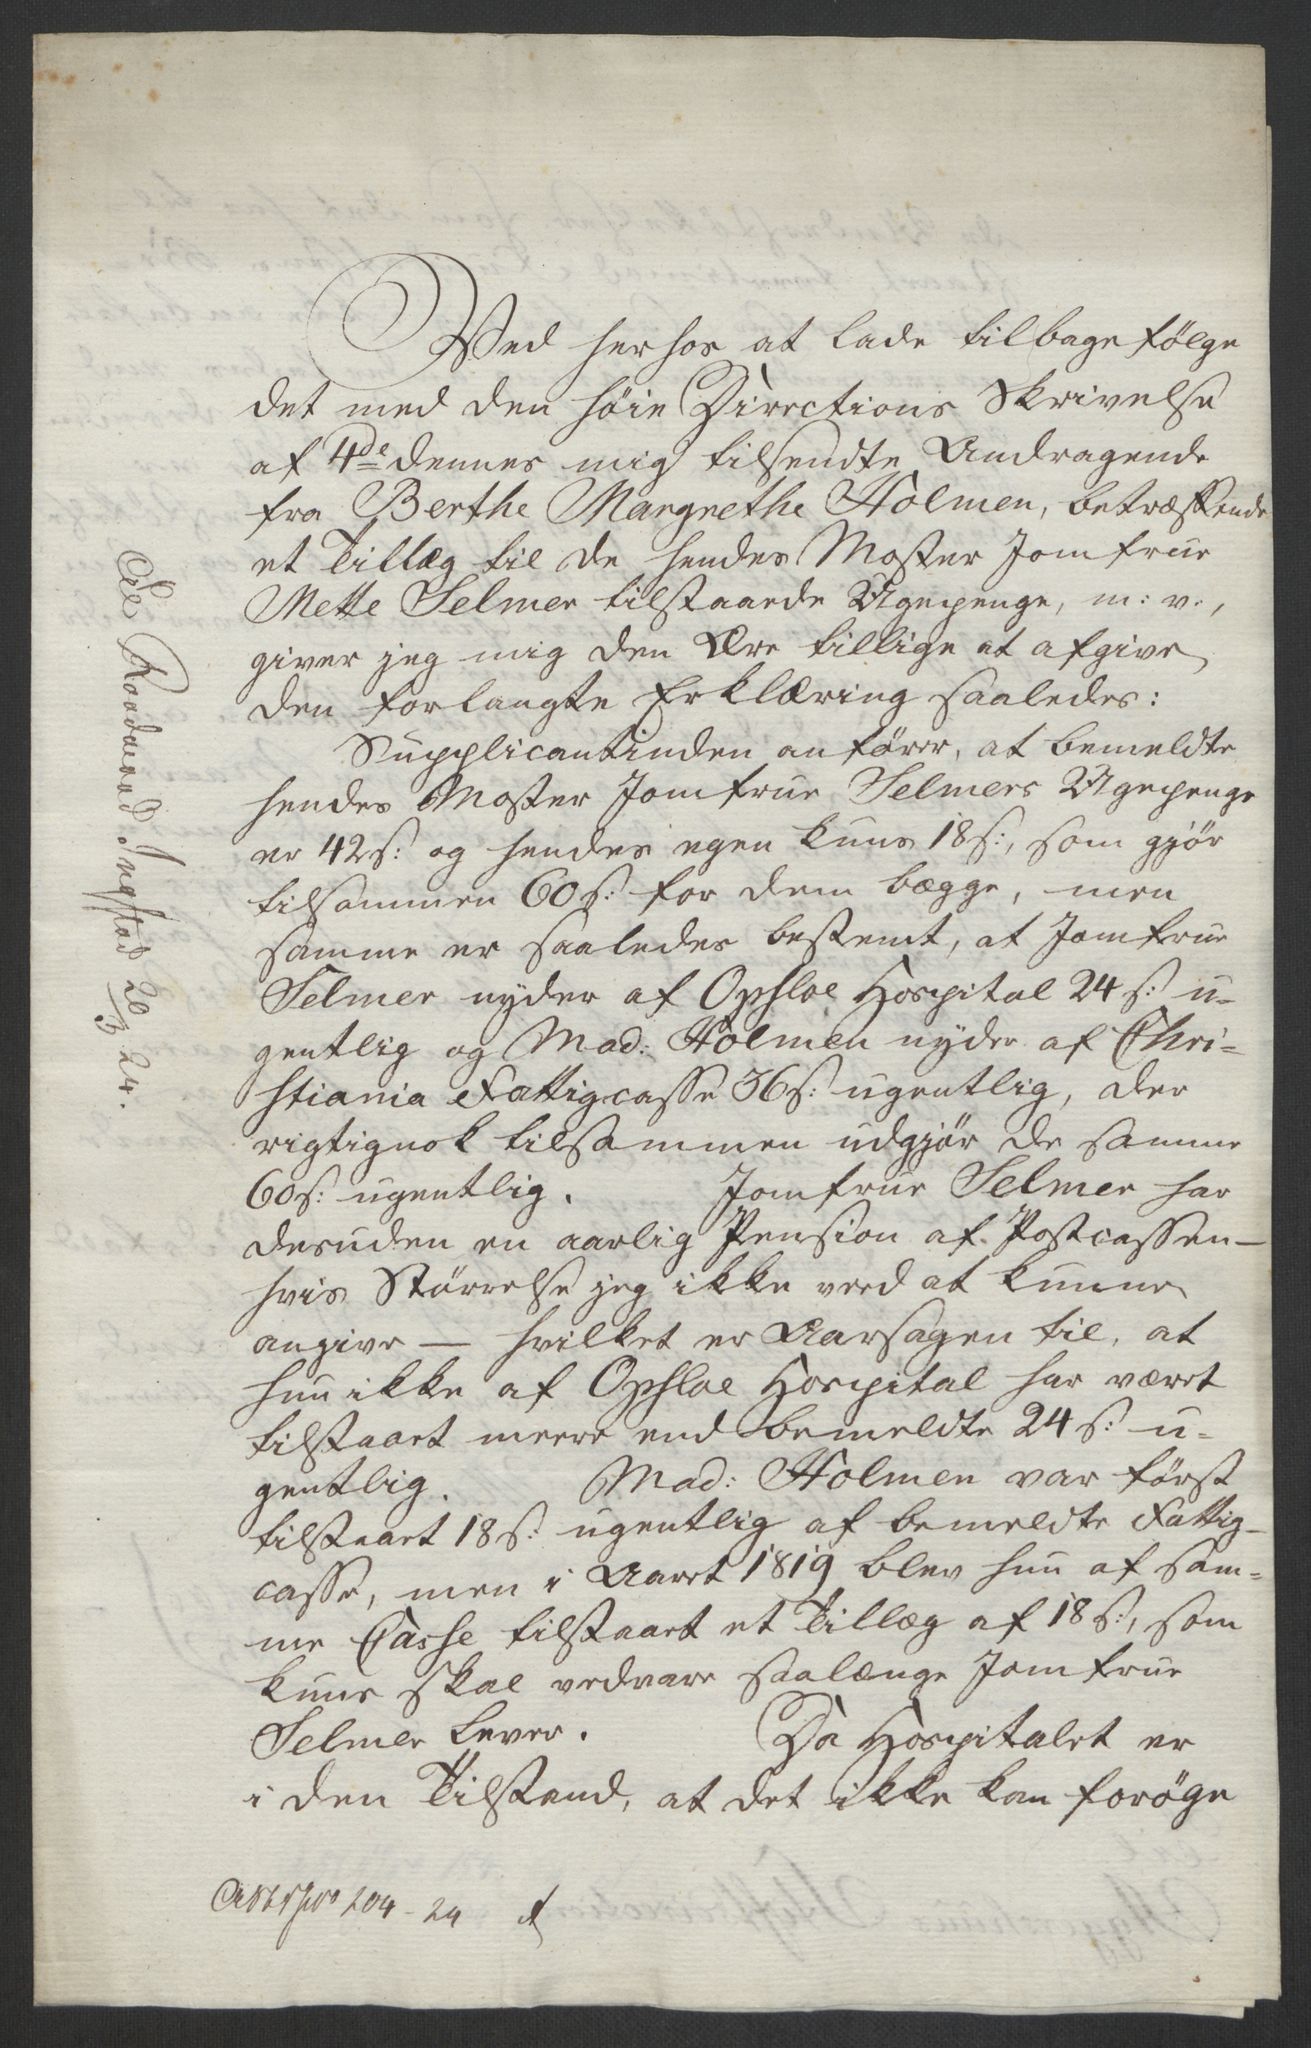 Ved herhos at lade tilbagefølge
det med den høie Directions Skrivelse
af 4de dennes mig tilsendte Andragende
fra Berthe Margrethe Holmen, betræffende
et Tillæg til de hendes Moster Jomfrue
Mette Selmer tilstaaede Ugepenge, m: v:,
giver jeg mig den Ære tillige at afgive
den forlangte Erklæring saaledes:
Supplicantinden anfører, at bemeldte
hendes Moster Jomfrue Selmers Ugepenge
er 42 s: og hendes egen kuns 18 s:, som gjør
tilsammen 60 s: for dem begge, men
samme er saaledes bestemt, at Jomfrue
Selmer nyder af Opsloe Hospital 24 s: u-
gentlig og Mad: Holmen nyder af Chri-
stiania Fattigcasse 36 s: ugentlig, der
rigtignok tilsammen udgjør de samme
60 s: ugentlig. Jomfrue Selmer har
desuden en aarlig Pension af Postcassen —
hvis Størrelse jeg ikke veed at kunne
angive — hvilket er Aarsagen til, at
hun ikke af Opsloe Hospital har været
tilstaaet meere end bemeldte 24 s: u-
gentlig. Mad: Holmen var først
tilstaaet 18 s: ugentlig af bemeldte Fattig-
casse, men i Aaret 1819 blev hun af sam-
me Casse tilstaaet et Tillæg af 18 s:, som
kuns skal vedvare saalænge Jomfrue
Selmer lever. Da Hospitalet er
i den Tilstand, at det ikke kan forøge
204 - 24
Raadmand Ingstad 20/3 24.